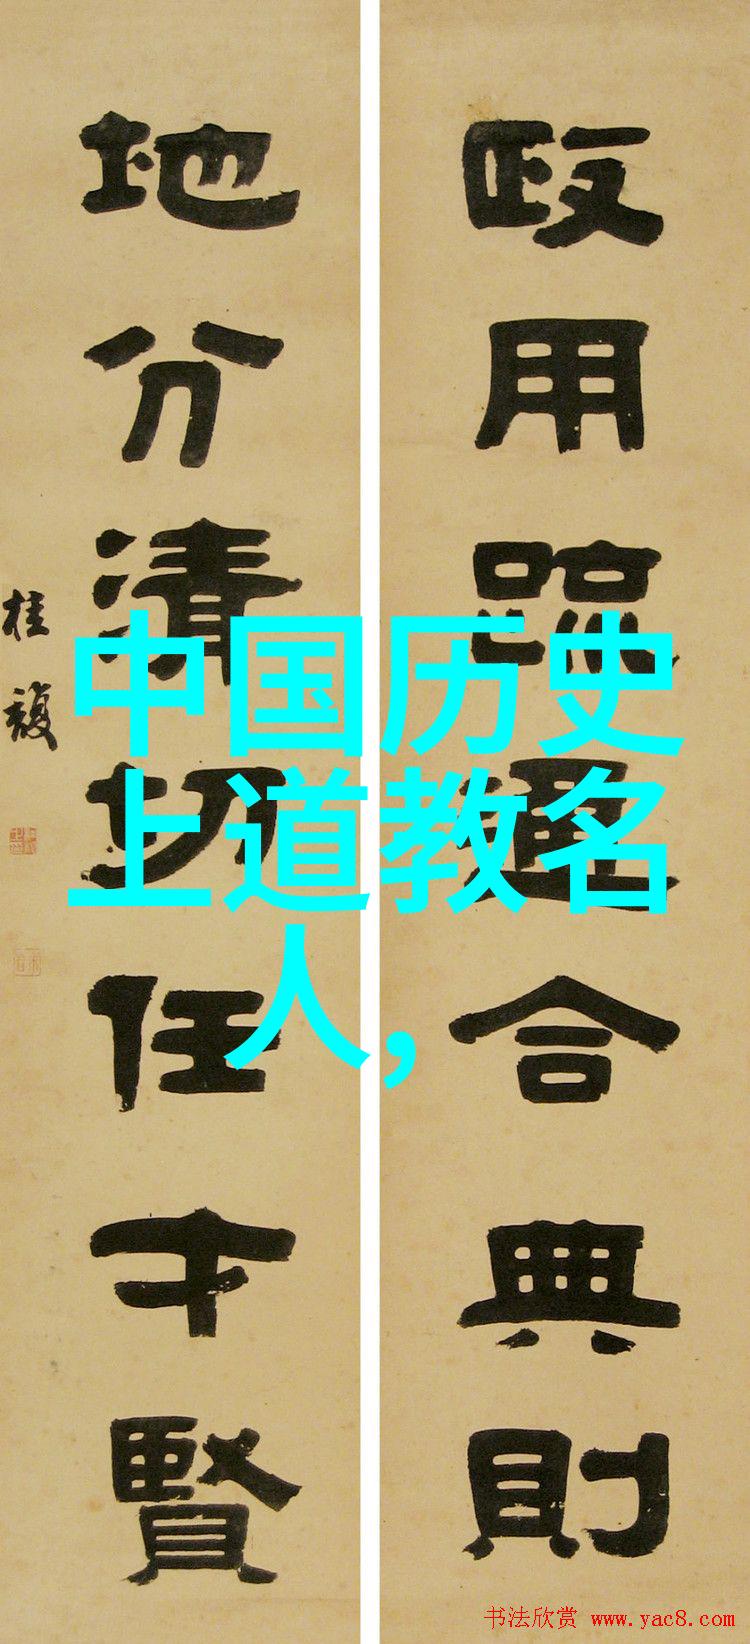 政用疏通合典則
地分清切任才賢
桂馥
中国历史
上道教名
人,
书法欣赏 www.yac8.com